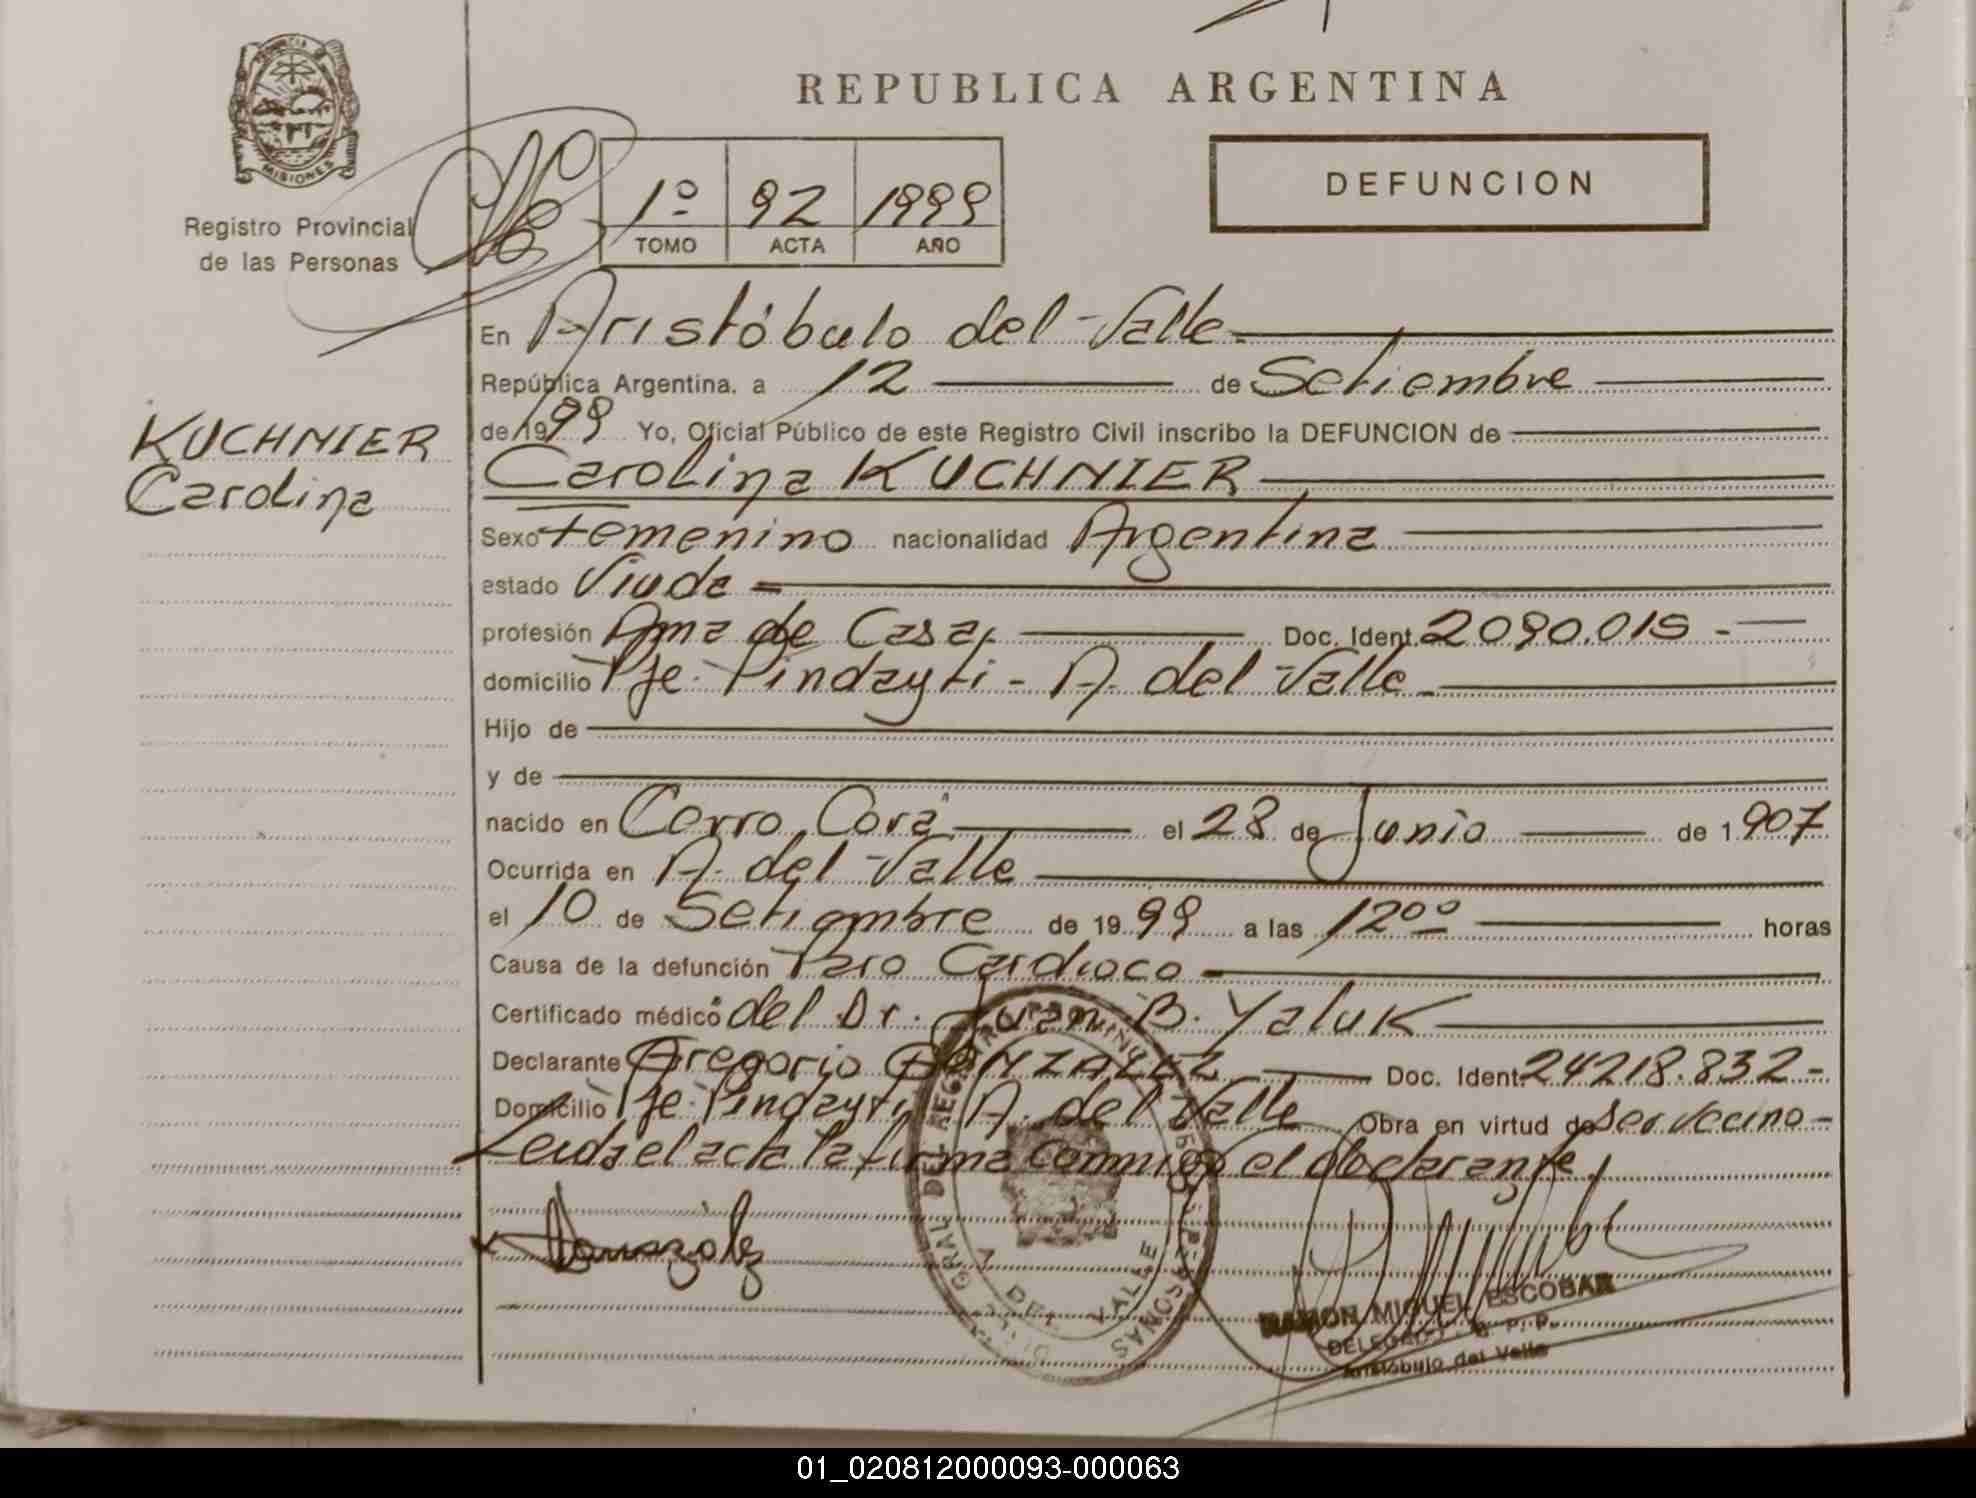 REPUBLICA ARGENTINA
MISIONES
Registro Provincial
de las Personas
1º 92 1999
TOMO ACTA AÑO
DEFUNCION
KUCHNIER
Carolina
En Aristóbulo del Valle
República Argentina, a 12 de Setiembre
de 1999 Yo, Oficial Público de este Registro Civil inscribo la DEFUNCION de
Carolina KUCHNIER
Sexo Femenino nacionalidad Argentina
estado Viuda
profesión Ama de Casa, Doc. Ident. 2090.015 -
domicilio Pje. Pindayti - A. del Valle
Hijo de
y de
nacido en Cerro Corá el 28 de Junio de 1907
Ocurrida en A. del Valle
el 10 de Setiembre de 1999 a las 12ºº horas
Causa de la defunción Paro Cardiaco
Certificado médico del Dr. Juan B. Yaluk
Declarante Gregorio GONZALEZ Doc. Ident. 24218.832 -
Domicilio Pje. Pindayti A. del Valle Obra en virtud de ser vecino -
Leida el acta la firma conmigo el declarante,
Gonzalez
A. DEL VALLE
RAMON MIGUEL ESCOBAR
DELEGADO R. P. P.
Aristóbulo del Valle
01_020812000093-000063